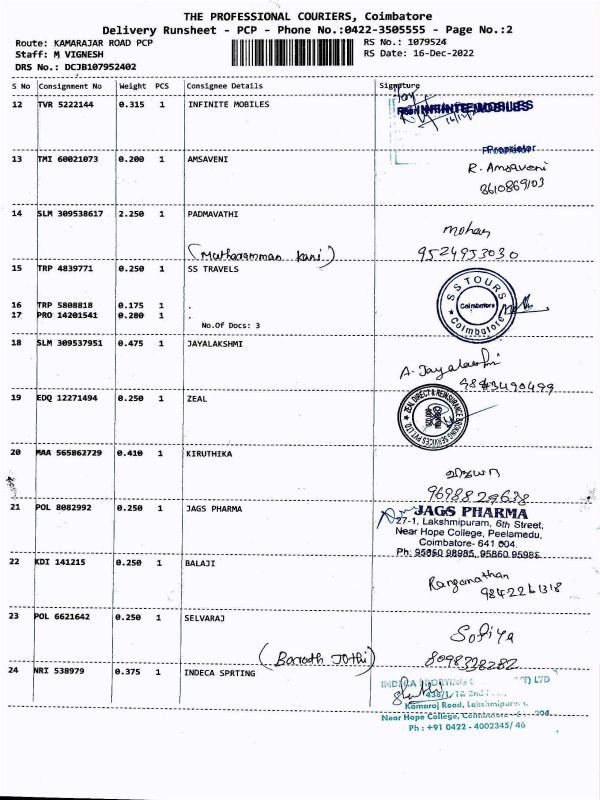 THE PROFESSIONAL COURIERS, Coimbatore
Delivery Runsheet - PCP - Phone No.:0422-3505555 - Page No.:2
Route: KAMARAJAR ROAD PCP
RS No.: 1079524
Staff: M VIGNESH
RS Date: 16-Dec-2022
DRS No.: DCJB107952402
S No Consignment No Weight PCS Consignee Details Signature
12 TVR 5222144 0.315 1 INFINITE MOBILES
INFINITE MOBILES
Proprietor
13 TMI 60021073 0.200 1 AMSAVENI
R. Amsaveni
8610869103
14 SLM 309538617 2.250 1 PADMAVATHI
mohan
9524953030
15 TRP 4839771 0.250 1 SS TRAVELS
SS TOURS
Coimbatore
Coimbatore
16 TRP 5808818 0.175 1 .
17 PRO 14201541 0.280 1 .
No.Of Docs: 3
18 SLM 309537951 0.475 1 JAYALAKSHMI
A. Jayalakshmi
19 EDQ 12271494 0.250 1 ZEAL
20 MAA 565862729 0.410 1 KIRUTHIKA
9698829638
21 POL 8082992 0.250 1 JAGS PHARMA
JAGS PHARMA
27-1, Lakshmipuram, 6th Street,
Near Hope College, Peelamedu,
Coimbatore- 641 004.
Ph: 95850 98985, 95860 95985
22 KDI 141215 0.250 1 BALAJI
Ranganathan
9842261318
23 POL 6621642 0.250 1 SELVARAJ
Sofiya
(Barath Jothi) 8098328282
24 NRI 538979 0.375 1 INDECA SPRTING
Kamaraj Road, Lakshmipuram,
Near Hope College, Coimbatore
Ph : +91 0422 - 4002345/ 46